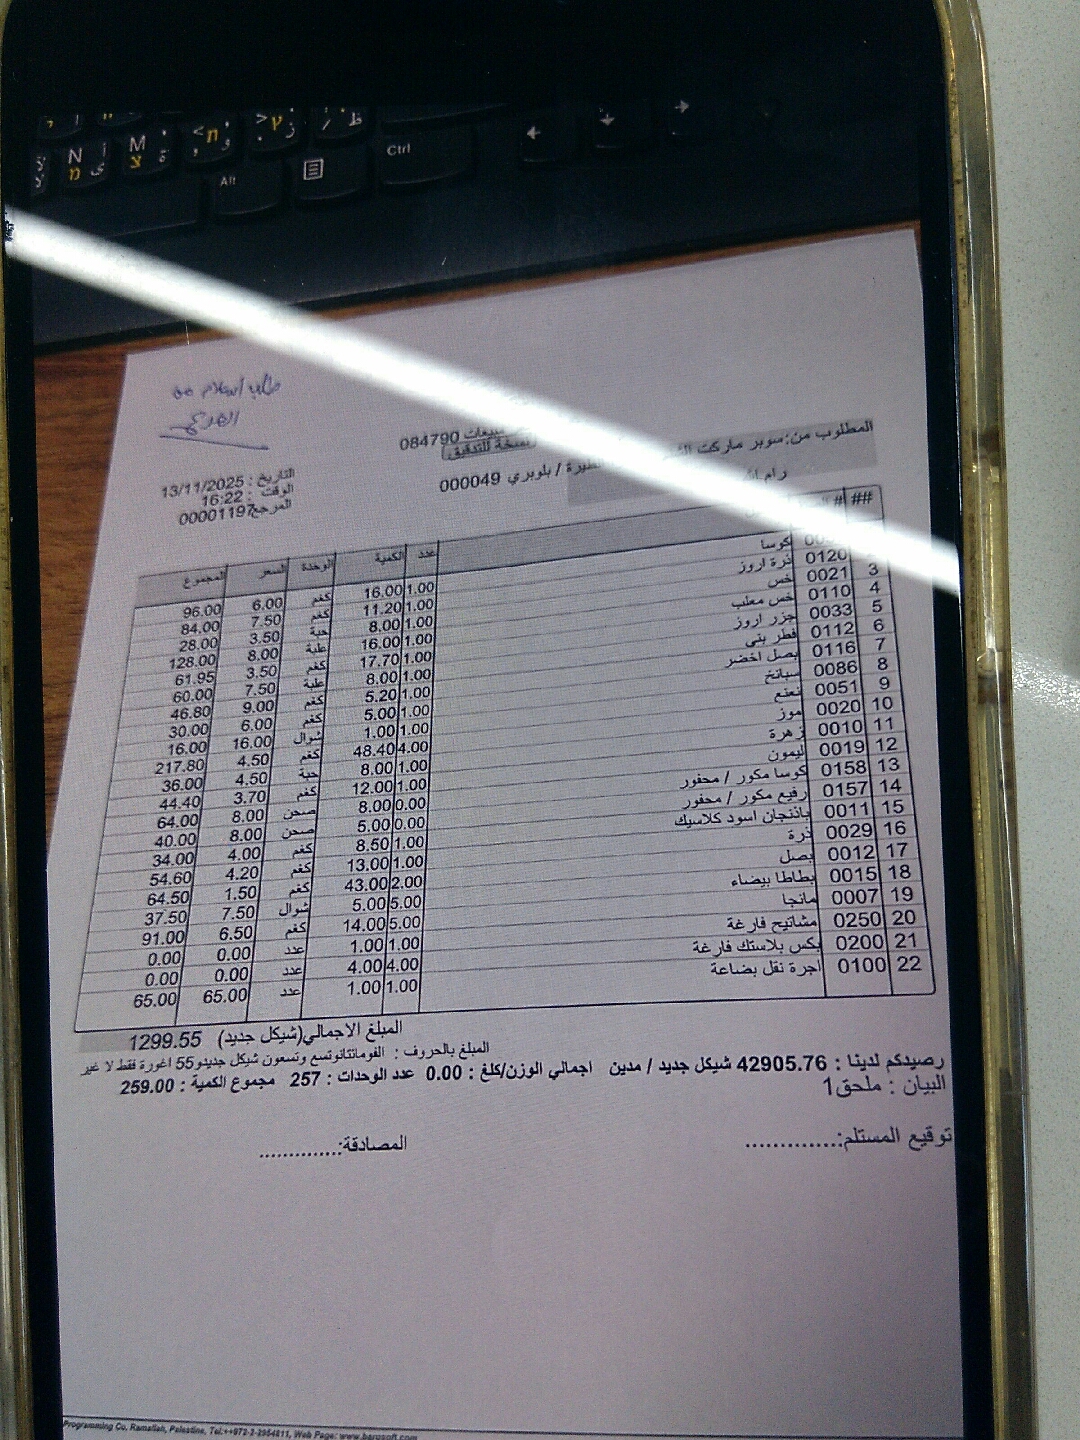 N מ
M צ ة
Alt
Ctrl
طلب أسلام
المطلوب من: سوبر ماركت
مبيعات 084790
نسخة للتدقيق
رام الله
الطيرة / بلوبري 000049
التاريخ : 13/11/2025
الوقت : 16:22
المرجع 00001197
## # عدد الكمية الوحدة السعر المجموع
كوسا 1.00 16.00 كغم 6.00 96.00
0120 ذرة اروز 1.00 11.20 كغم 7.50 84.00
3 0021 خس 1.00 8.00 حبة 3.50 28.00
4 0110 خس معلب 1.00 16.00 علبة 8.00 128.00
5 0033 جزر اروز 1.00 17.70 كغم 3.50 61.95
6 0112 فطر بني 1.00 8.00 علبة 7.50 60.00
7 0116 بصل اخضر 1.00 5.20 كغم 9.00 46.80
8 0086 سبانخ 1.00 5.00 كغم 6.00 30.00
9 0051 نعنع 1.00 1.00 شوال 16.00 16.00
10 0020 موز 4.00 48.40 كغم 4.50 217.80
11 0010 زهرة 1.00 8.00 حبة 4.50 36.00
12 0019 ليمون 1.00 12.00 كغم 3.70 44.40
13 0158 كوسا مكور / محفور 0.00 8.00 صحن 8.00 64.00
14 0157 رفيع مكور / محفور 0.00 5.00 صحن 8.00 40.00
15 0011 باذنجان اسود كلاسيك 1.00 8.50 كغم 4.00 34.00
16 0029 ذرة 1.00 13.00 كغم 4.20 54.60
17 0012 بصل 2.00 43.00 كغم 1.50 64.50
18 0015 بطاطا بيضاء 5.00 5.00 شوال 7.50 37.50
19 0007 مانجا 5.00 14.00 كغم 6.50 91.00
20 0250 مشاتيح فارغة 1.00 1.00 عدد 0.00 0.00
21 0200 بكس بلاستك فارغة 4.00 4.00 عدد 0.00 0.00
22 0100 اجرة نقل بضاعة 1.00 1.00 عدد 65.00 65.00
المبلغ الاجمالي(شيكل جديد) 1299.55
المبلغ بالحروف : الفومائتانوتسع وتسعون شيكل جديدو55 اغورة فقط لا غير
رصيدكم لدينا : 42905.76 شيكل جديد / مدين اجمالي الوزن/كلغ : 0.00 عدد الوحدات : 257 مجموع الكمية : 259.00
البيان : ملحق1
توقيع المستلم:.............. المصادقة:..............
Programming Co. Ramallah, Palestine, Tel:++972-2-2954811, Web Page: www.barqsoft.com